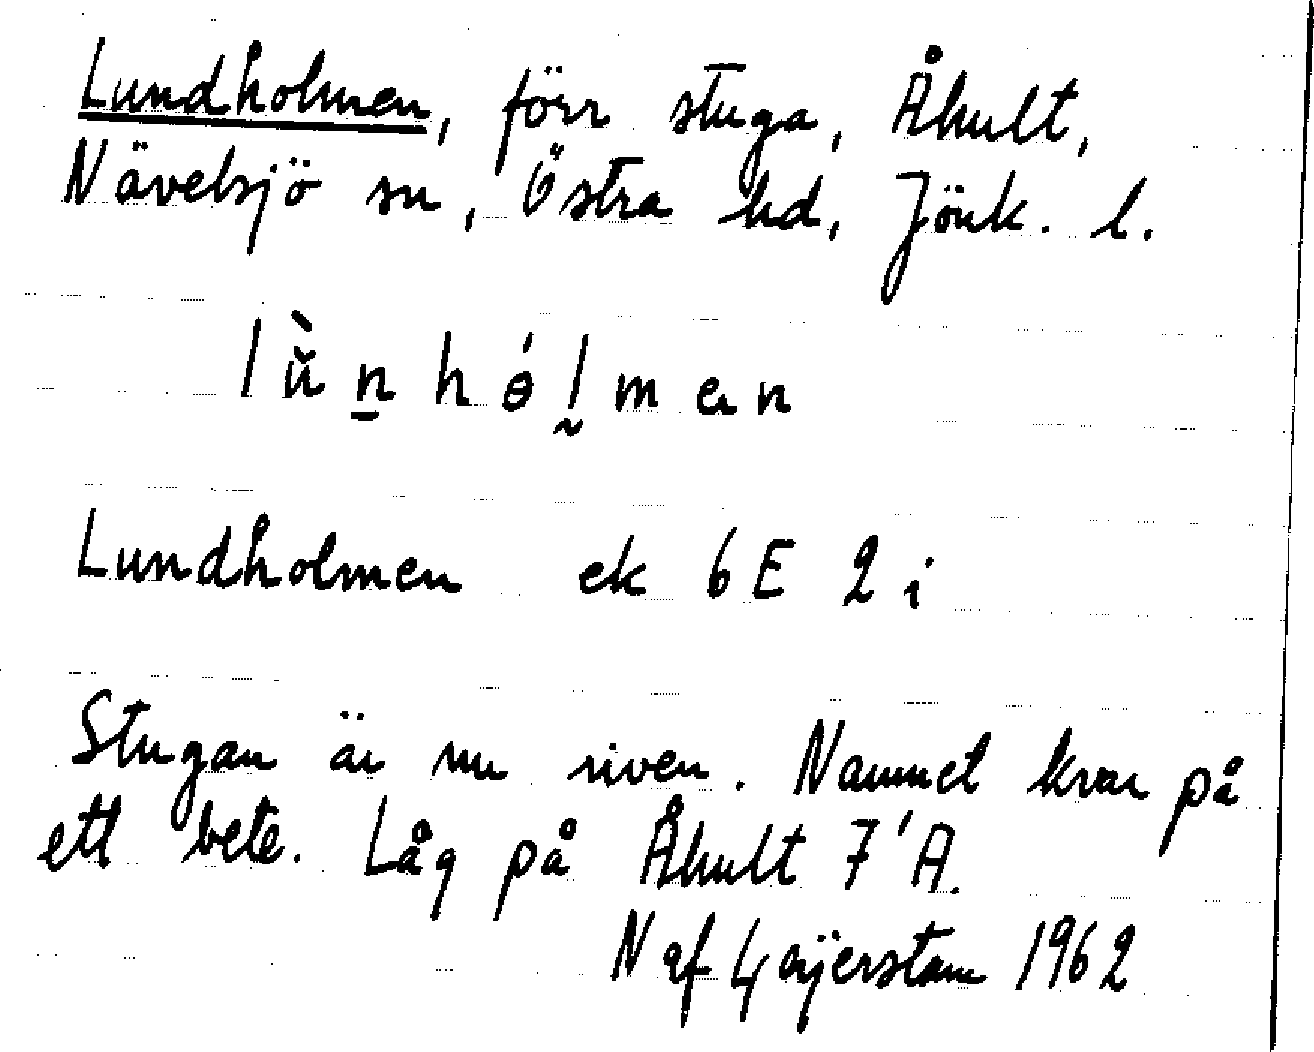 Lundholmen, förr stuga, Åhult,
Nävelsjö sn, Östra hd, Jönk. l.
lǜn̲hɵ́l̰mɐn
Lundholmen ek 6E 2 i
Stugan är nu riven. Namnet kvar på
ett bete. Låg på Åhult 7'A.
N af Geijerstam 1962